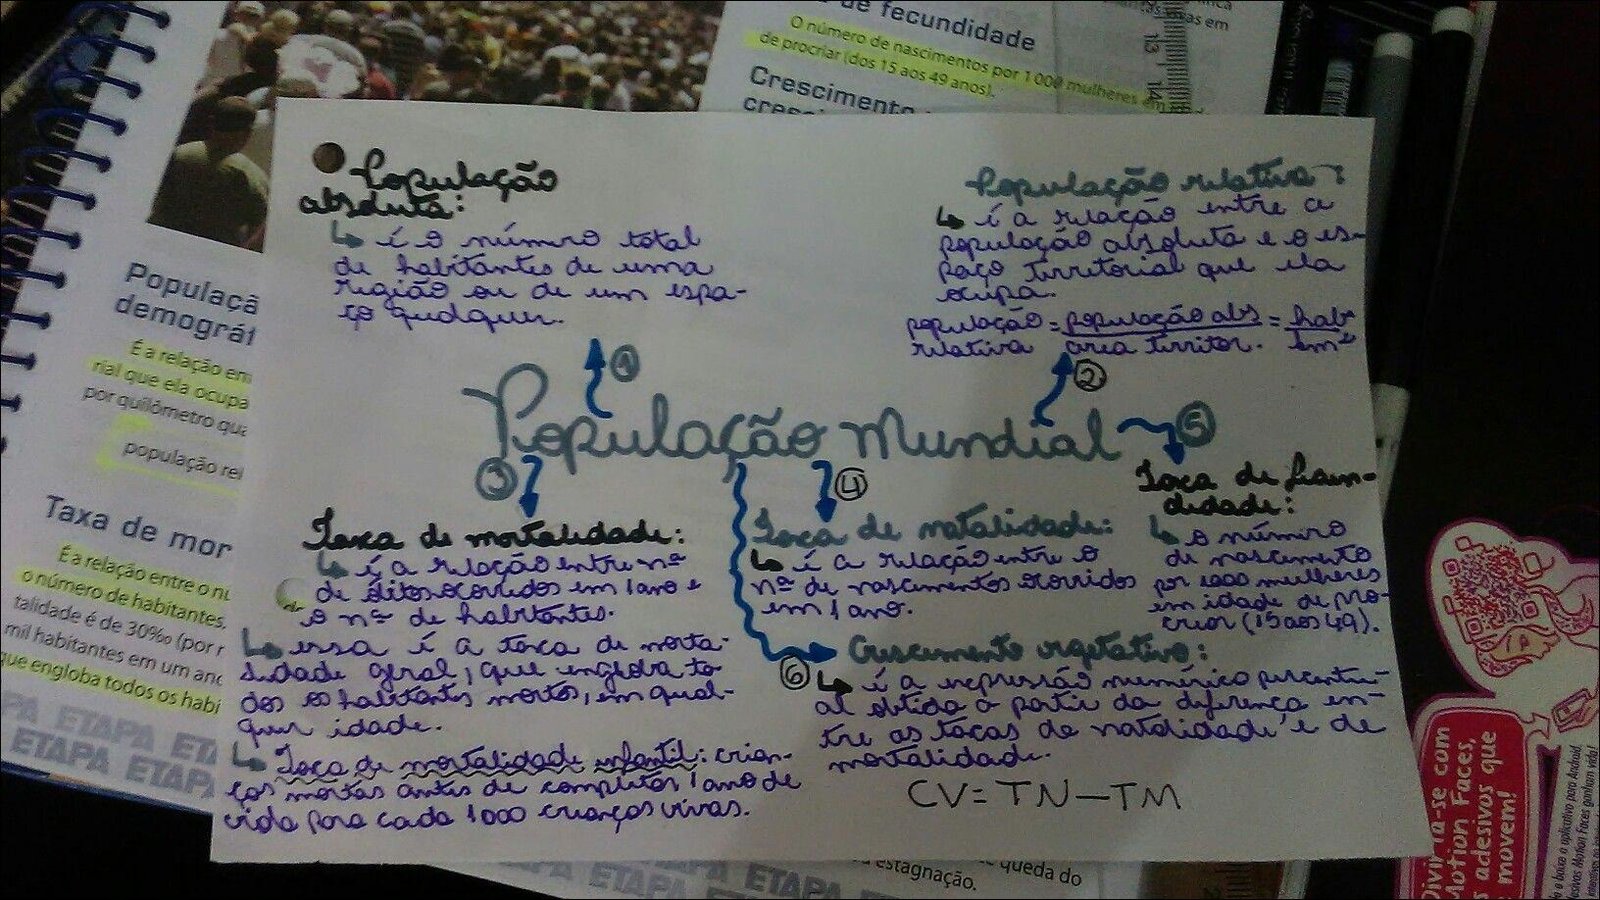 de fecundidade
O número de nascimentos por 1 000 mulheres em
de procriar (dos 15 aos 49 anos).
Crescimento
13
14
Populaçã
demográf
É a relação en
rial que ela ocupa
por quilômetro qua
população rel
Taxa de mor
É a relação entre o nú
o número de habitantes,
talidade é de 30‰ (por r
mil habitantes em um ano
que engloba todos os habi
PA ETAPA ETA
ETAPA ETAPA
População
absoluta:
↳ é o número total
de habitantes de uma
região ou de um espa-
ço qualquer.
População relativa:
↳ é a relação entre a
população absoluta e o es-
paço territorial que ela
ocupa.
população = população abs = hab
relativa área territor. km²
1
2
População Mundial
5
3
4
Taxa de mortalidade:
↳ é a relação entre nº
de óbitos ocorridos em 1 ano e
o nº de habitantes.
↳ essa é a taxa de morta-
lidade geral, que engloba to-
dos os habitantes mortos, em qual-
quer idade.
↳ Taxa de mortalidade infantil: crian-
ças mortas antes de completar 1 ano de
vida para cada 1000 crianças vivas.
Taxa de natalidade:
↳ é a relação entre o
nº de nascimentos ocorridos
em 1 ano.
Taxa de fecun-
didade:
↳ o número
de nascimento
por 1000 mulheres
em idade de pro-
criar (15 aos 49).
6
Crescimento vegetativo:
↳ é a expressão numérico percentu-
al obtida a partir da diferença en-
tre as taxas da natalidade e de
mortalidade.
CV = TN – TM
queda do
estagnação.
ETAPA ETAPA
Divirta-se com
Motion Faces,
s adesivos que
movem!